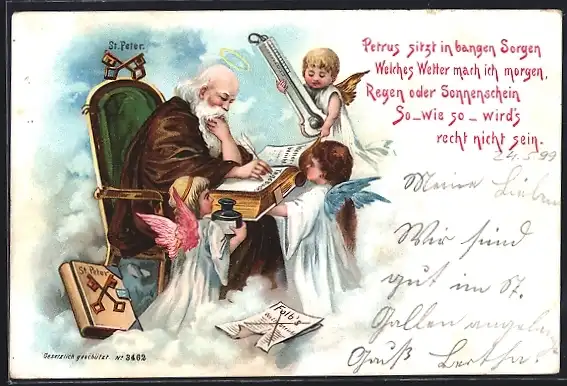 St. Peter.
Petrus sitzt in bangen Sorgen
Welches Wetter mach ich morgen,
Regen oder Sonnenschein
So_wie so_wird's
recht nicht sein.
24.5.99
Meine Lieben
Wir sind
gut in St.
Gallen
Gruß Bertha.
St. Peter
Falb's
Gesetzlich geschützt. No 3462